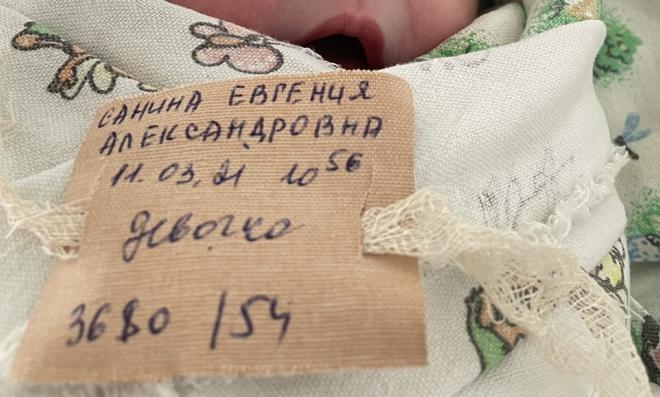 САНИНА ЕВГЕНИЯ
АЛЕКСАНДРОВНА
11.03.21 10 56
девочка
3680 / 54